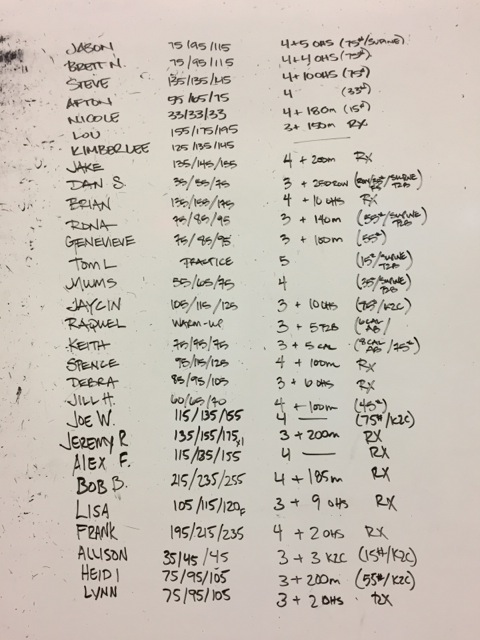 JASON 75/95/115 4+5 OHS (75#/SUPINE)
BRETT N. 75/95/115 4+4 OHS (75#)
STEVE 135/135/145 4+10 OHS (75#)
AFTON 55/65/75 4 (33#)
NICOLE 33/33/33 4+180m (15#)
LOU 155/175/195 3+150m RX
KIMBERLEE 125/135/145
JAKE 135/145/155 4 + 200m RX
DAN S. 35/55/75 3 + 250 ROW
BRIAN 135/155/175 4 + 10 OHS RX
RONA 75/85/95 3 + 140m (55#/SUPINE T2B)
GENEVIEVE 75/85/95 3 + 100m (55#)
TOM L PRACTICE 5 (15#/SUPINE T2B)
MUMS 55/65/75 4 (35/SUPINE T2B)
JAYCIN 105/115/125 3 + 10 OHS (75#/K2C)
RAQUEL WARM-UP 3 + 5 T2B (6 CAL AB/
KEITH 75/75/75 3 + 5 CAL (8 CAL AB/75#)
SPENCE 95/115/125 4 + 100m RX
DEBRA 85/95/105 3 + 6 OHS RX
JILL H. 60/65/70 4 + 100m (45#)
JOE W. 115/135/155 4 — (75#/K2C)
JEREMY R 135/155/175x1 3 + 200m RX
ALEX F. 115/135/155 4 — RX
BOB B. 215/235/255 4 + 185m RX
LISA 105/115/120F 3 + 9 OHS RX
FRANK 195/215/235 4 + 2 OHS RX
ALLISON 35/45/45 3 + 3 K2C (15#/K2C)
HEIDI 75/95/105 3 + 200m (55#/K2C)
LYNN 75/95/105 3 + 2 OHS RX